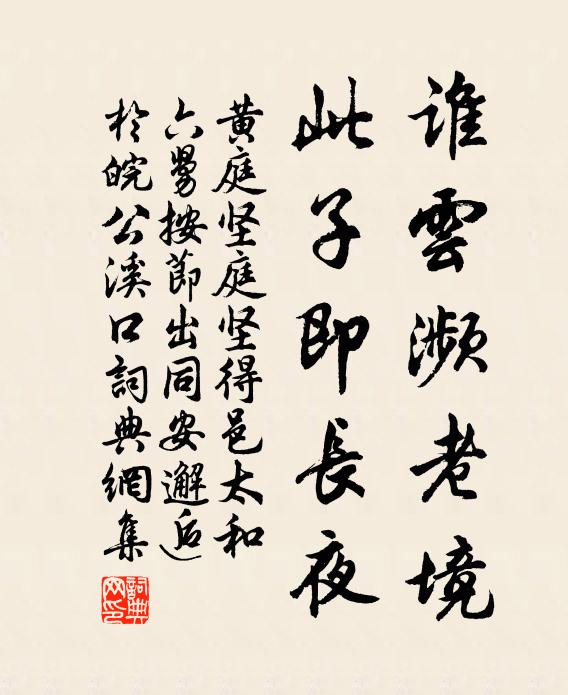 誰雲瀕老境
此子即長夜
黄庭坚庭坚得邑太和
六舅按節出同安邂逅
於皖公溪口詞典網集
詞典网印